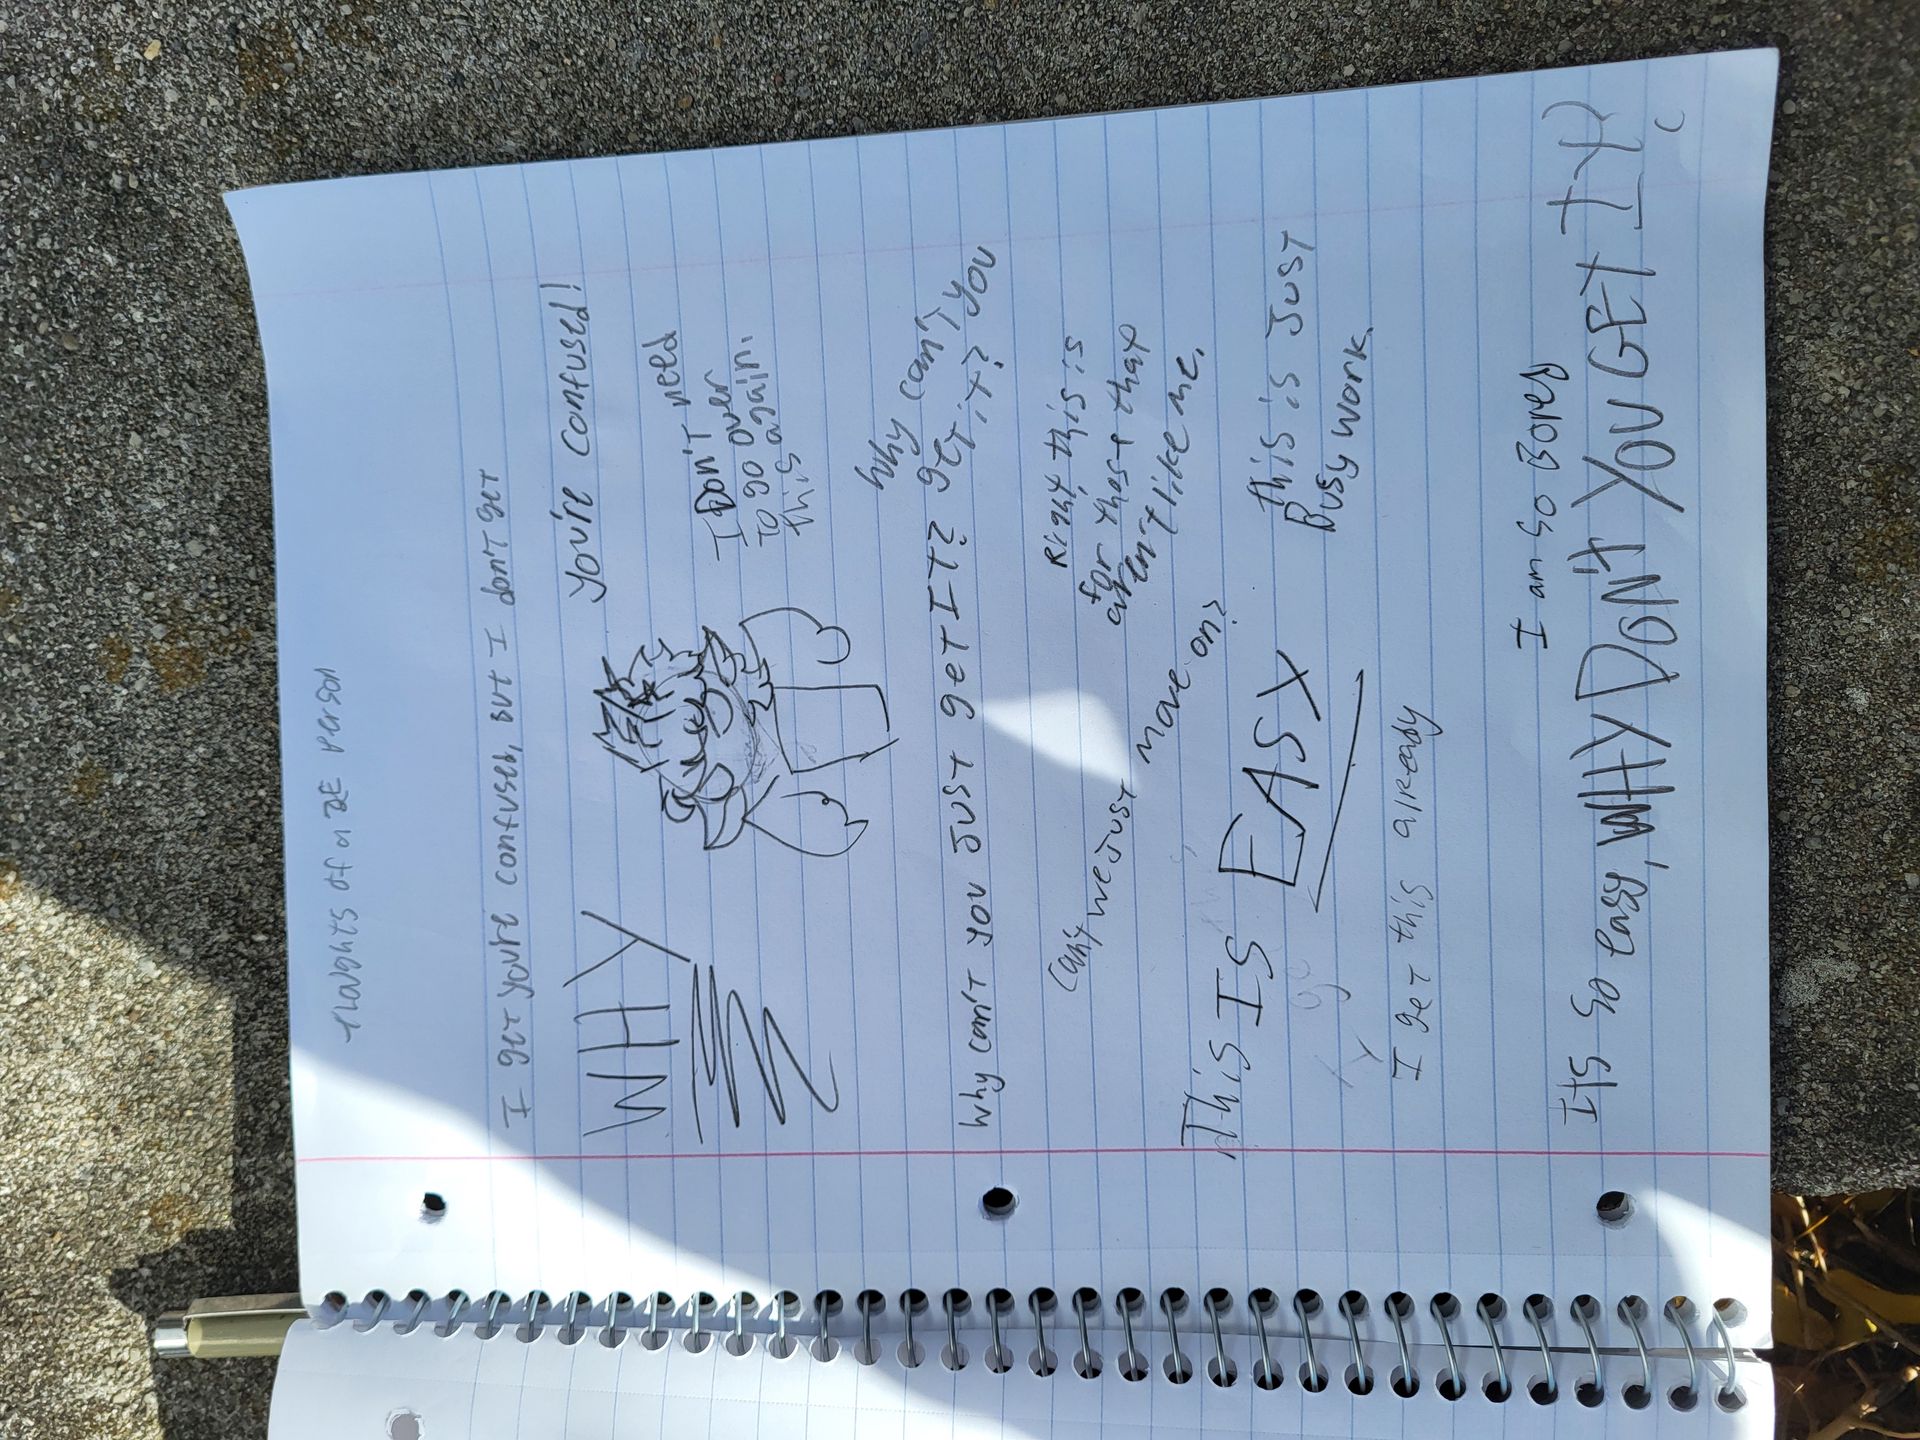 thoughts of a 2E person
I get you're confused, but I don't get
WHY
you're confused!
I Don't need
to go over
this again.
Why can't you just get it?
Why can't you
get it?
Right this is
for those that
aren't like me.
Can't we just move on?
This IS EASY
this is just
Busy work.
I get this already
I am so Bored
It's so easy, WHY DON'T YOU GET IT?